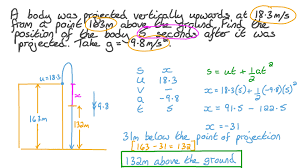 A body was projected vertically upwards at 18.3 m/s
from a point 163m above the ground. Find the
position of the body 5 seconds after it was
projected. Take g = -9.8m/s².
u=18.3
x
↓9.8
163m
132m
S x
U 18.3
V -
a -9.8
t 5
s = ut + ½at²
x = 18.3(5) + ½(-9.8)(5)²
x = 91.5 - 122.5
x = -31
31m below the point of projection
[163 - 31 = 132]
132m above the ground